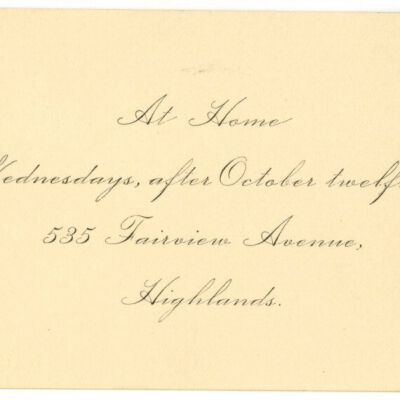 At Home
Wednesdays, after October twelf
535 Fairview Avenue,
Highlands.